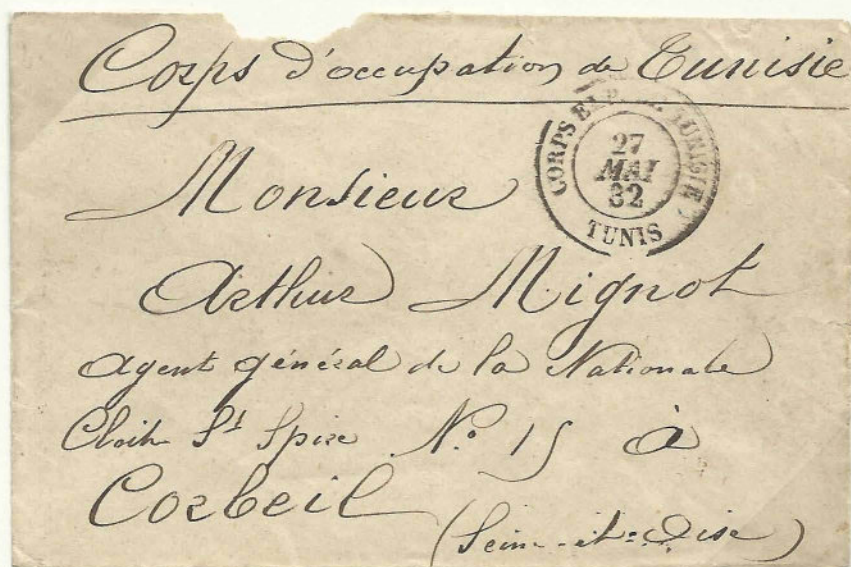 Corps d'occupation de Tunisie
CORPS EXP. TUNISIE
27
MAI
82
TUNIS
Monsieur
Arthur Mignot
Agent général de la Nationale
Cloitre St Spire N.º 15 à
Corbeil
(Seine-et-Oise)